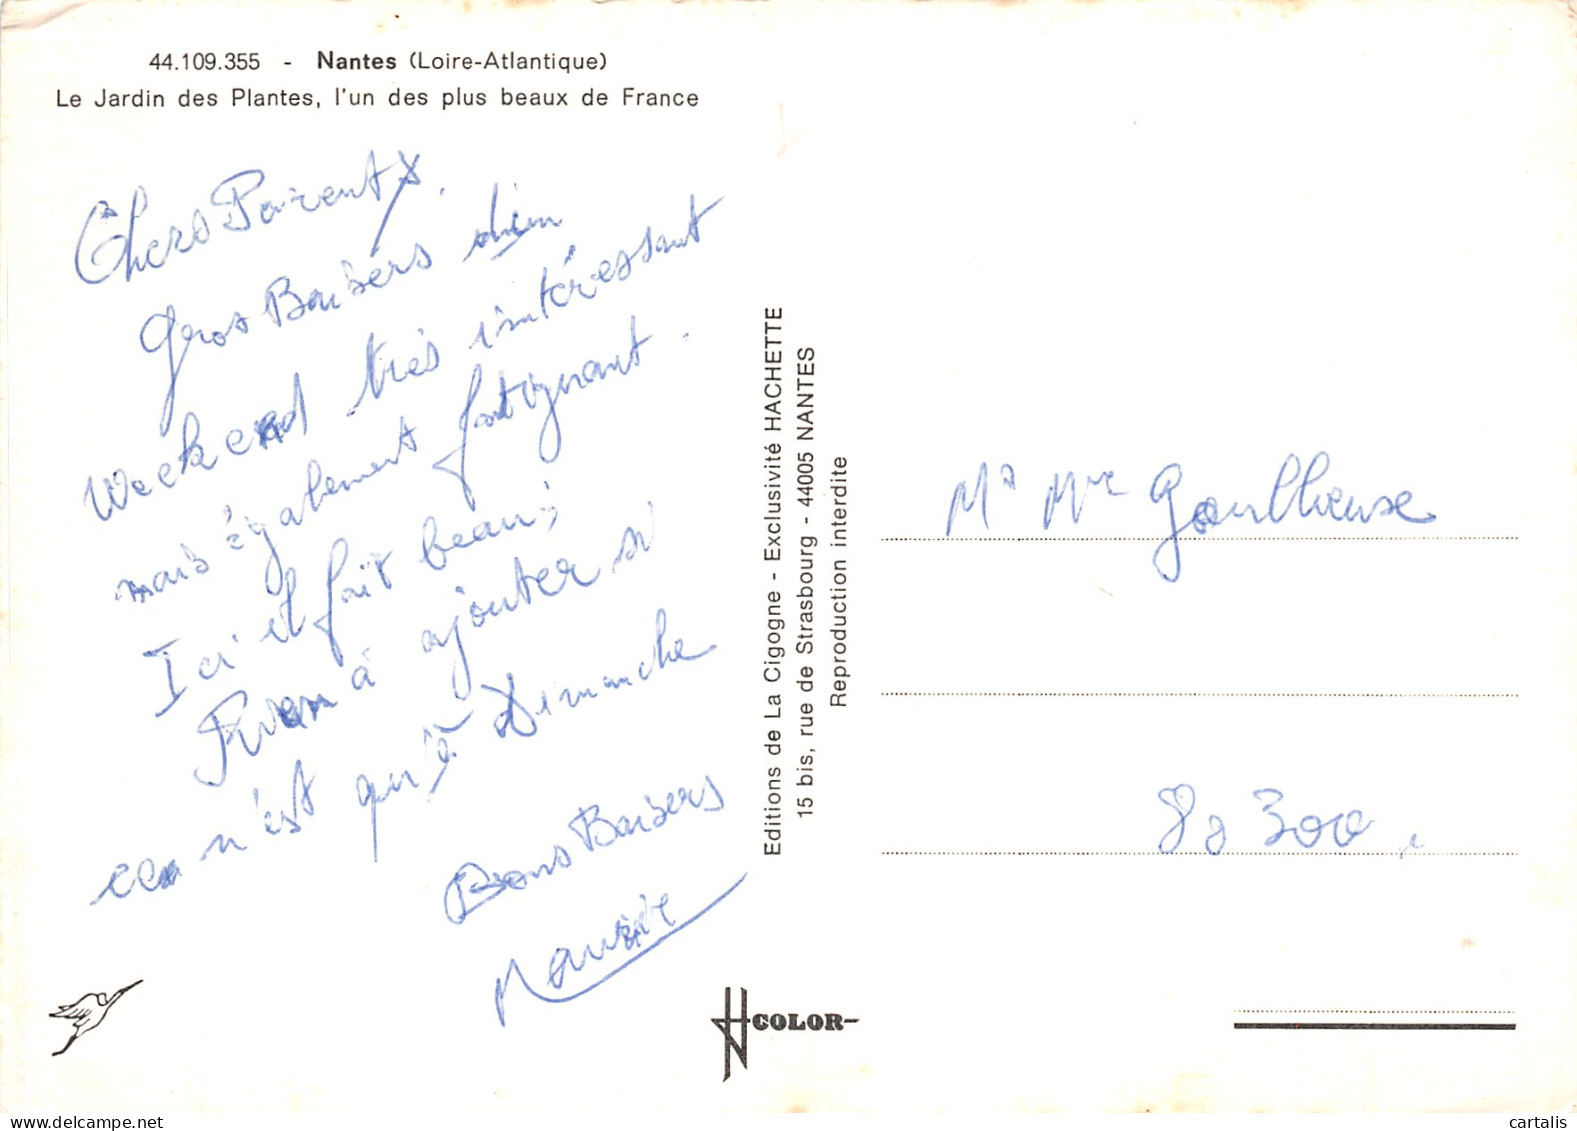 44.109.355 - Nantes (Loire-Atlantique)
Le Jardin des Plantes, l'un des plus beaux de France
Chers Parents.
Gros Baisers d'un
Weekend très intéressant
mais également fatiguant.
Ici il fait beau;
Rien à ajouter si
ce n'est qu'à Dimanche
Bons Baisers
Maurice
Editions de La Cigogne - Exclusivité HACHETTE
15 bis, rue de Strasbourg - 44005 NANTES
Reproduction interdite
Mr Mme
80300
COLOR
cartalis